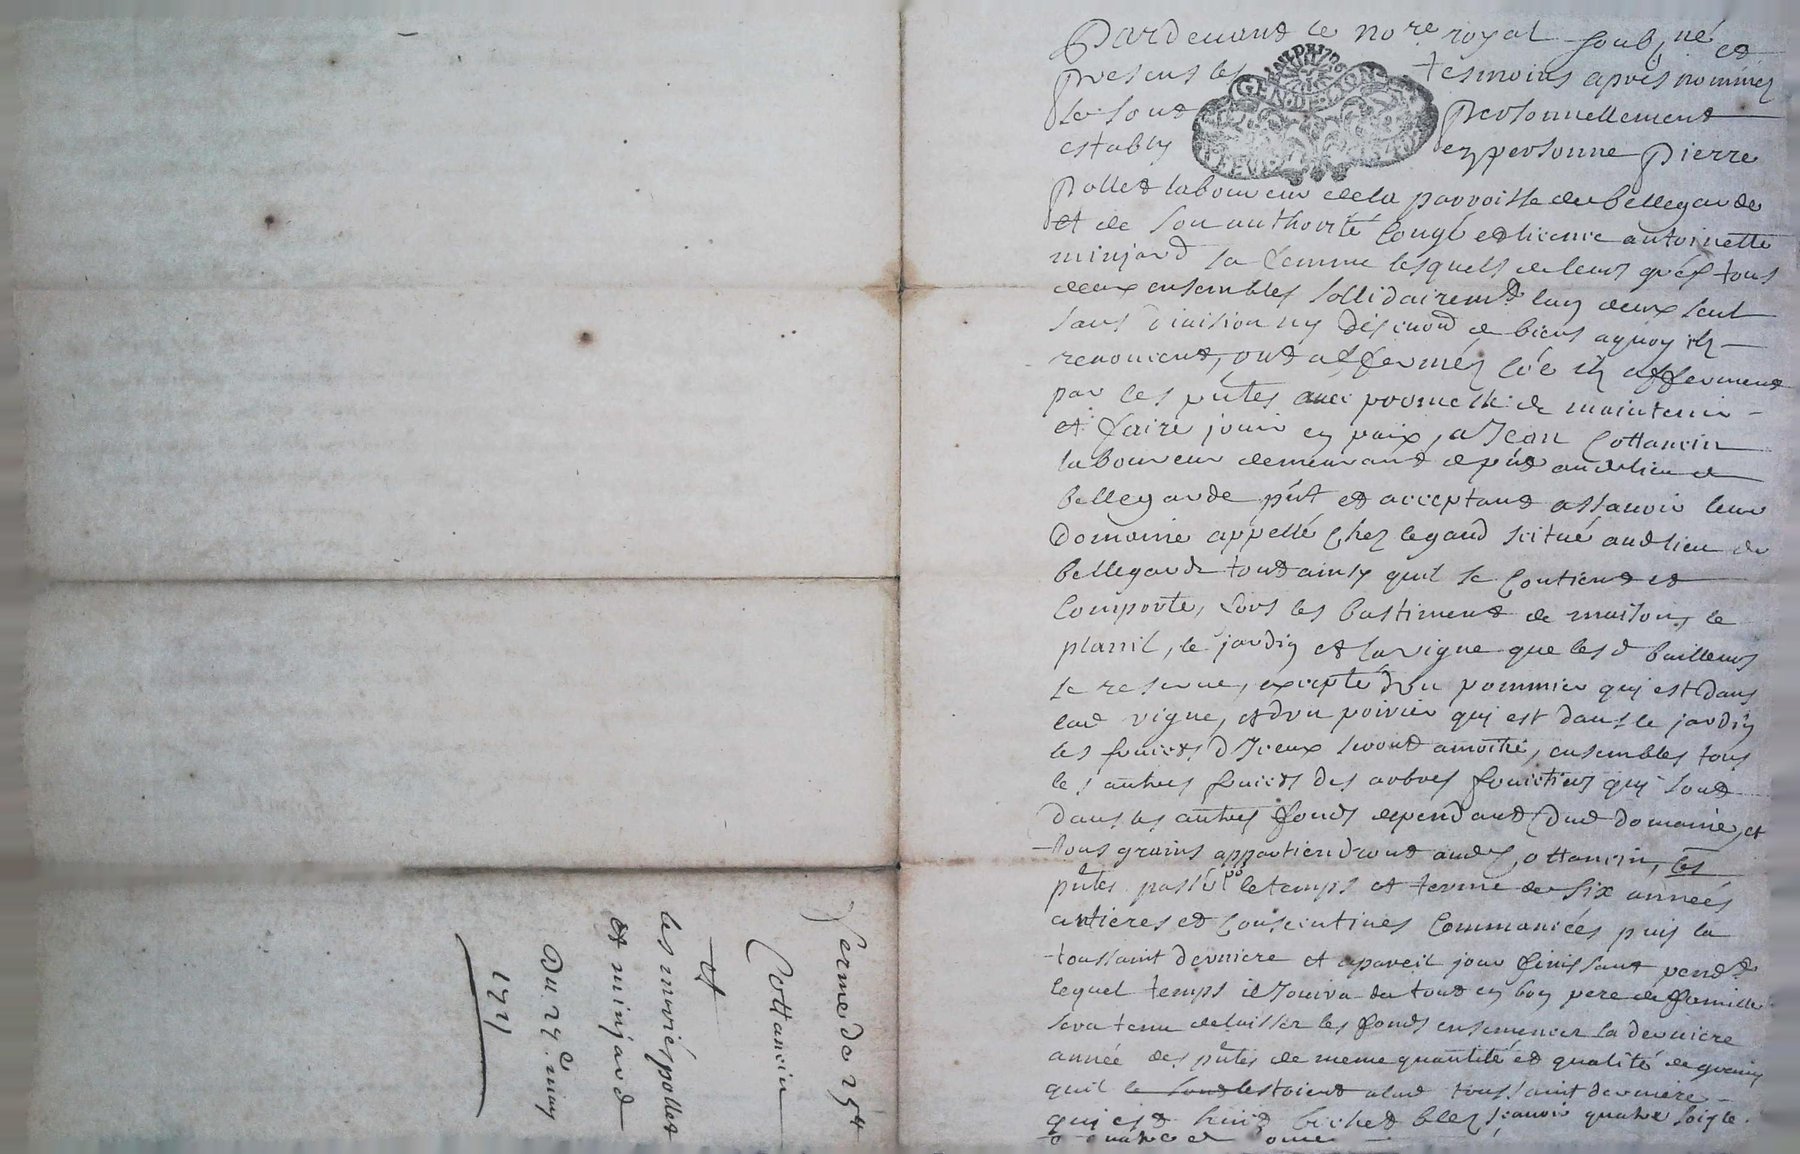 Pardevant le no.re royal soub.né et
presens les tesmoins apres nommez
se sont personnellement
estably en personne pierre
pollet laboureur de la parroisse de bellegarde
et de son authorité congé et licence antoinette
minjard sa femme lesquels de leurs gréz tous
deux ensembles sollidairem.t lun deux seul
sans division ny de biens a quoy ils
renoncent, ont affermez ils afferment
par ces pntes avec promesse de maintenir
et faire jouir en paix, a Jean Cottancin
laboureur demeurant aud lieu de
bellegarde pnt et acceptant assavoir leur
Domaine appellé chez legaud scitué aud lieu de
bellegarde tout ainsy quil se contient et
comporte, hors les bastiment de maison, le
plassil, le jardin et la vigne que lesd bailleurs
se reserve, excepté dun pommier qui est dans
lad vigne, et dun poirier qui est dans le jardin
les fruicts d Iceux seront a moitié, ensembles tous
les autres fruicts des arbres fruictiers qui sont
dans les autres fonds dependant dud domaine, et
tous grains appartiendront aud Cottancin, les
pntes passé po le temps et terme de six années
antieres et consecutives commancées puis la
toussaint derniere et a pareil jour finissant pend.t
lequel temps il Jouira du tout en bon pere de famille
sera tenu de laisser les fonds ensemencer la derniere
année des pntes de meme quantité et qualité de grains
quil le sont lestoient a lad toussaint derniere
qui est huit bichet bled, scavoir quatre soigle
et quatre
ferme de 25 ₶
Cottancin
et
les mariés pollet
et minjard
Du 24e. may
1721
GEN. DE LION